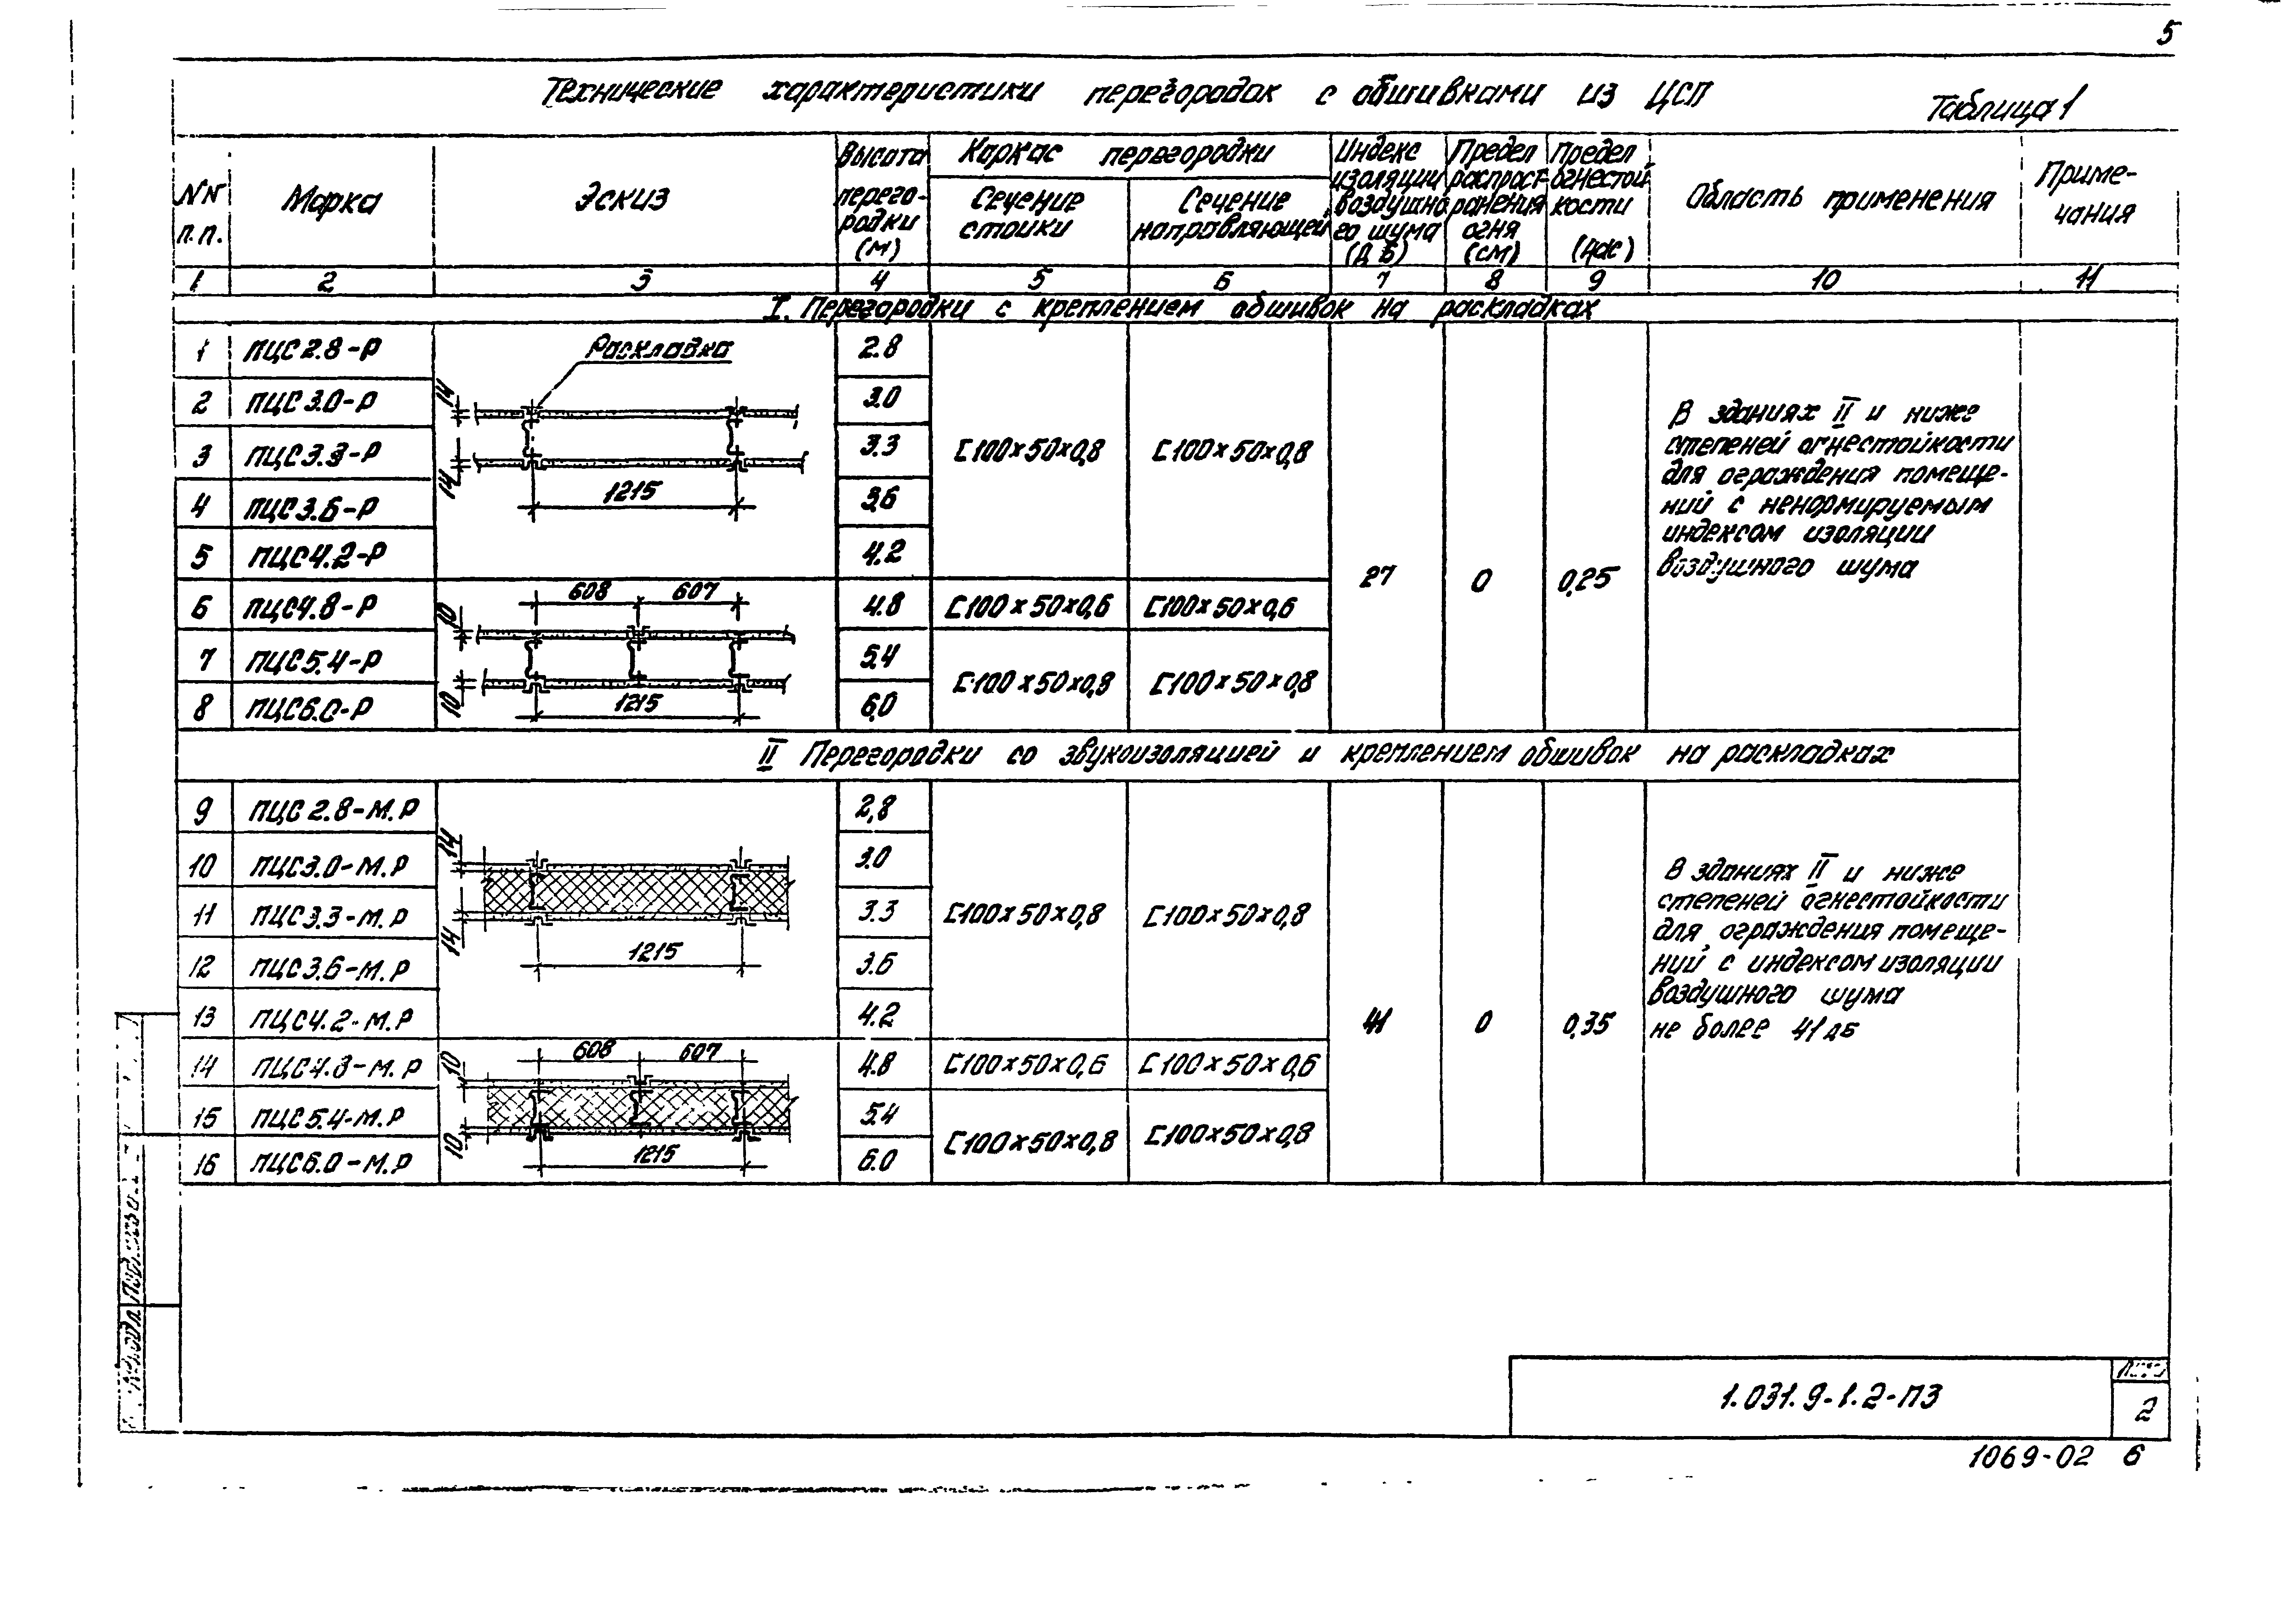 5
Технические характеристики перегородок с обшивками из ЦСП
Таблица 1
NN п.п.
Марка
Эскиз
Высота перего-родки (м)
Каркас перегородки
Сечение стойки
Сечение направляющей
Индекс изоляции воздушно го шума (дБ)
Предел распрост-ранения огня (см)
Предел огнестой кости (час)
Область применения
Приме-чания
1 2 3 4 5 6 7 8 9 10 11
I. Перегородки с креплением обшивок на раскладках
1 ПЦС 2.8-Р 2.8
2 ПЦС 3.0-Р 3.0
3 ПЦС 3.3-Р 3.3
4 ПЦС 3.6-Р 3.6
5 ПЦС 4.2-Р 4.2
Раскладка
14
14
1215
[100×50×0,8 [100×50×0,8
6 ПЦС 4.8-Р 4.8 [100×50×0,6 [100×50×0,6
7 ПЦС 5.4-Р 5.4
8 ПЦС 6.0-Р 6.0
[100×50×0,8 [100×50×0,8
608 607
10
10
1215
27 0 0,25
В зданиях II и ниже
степеней огнестойкости
для ограждения помеще-
ний с ненормируемым
индексом изоляции
воздушного шума
II Перегородки со звукоизоляцией и креплением обшивок на раскладках
9 ПЦС 2.8-М.Р 2,8
10 ПЦС 3.0-М.Р 3.0
11 ПЦС 3.3-М.Р 3.3
12 ПЦС 3.6-М.Р 3.6
13 ПЦС 4.2-М.Р 4.2
14
14
1215
[100×50×0,8 [100×50×0,8
14 ПЦС 4.8-М.Р 4.8 [100×50×0,6 [100×50×0,6
15 ПЦС 5.4-М.Р 5.4
16 ПЦС 6.0-М.Р 6.0
[100×50×0,8 [100×50×0,8
608 607
10
10
1215
41 0 0,35
В зданиях II и ниже
степеней огнестойкости
для ограждения помеще-
ний с индексом изоляции
воздушного шума
не более 41 дБ
1.031.9-1.2-ПЗ
Лист
2
1069-02 6